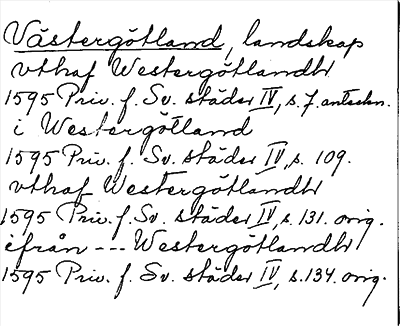 Västergötland, landskap
vthaf Westergötlandh
1595 Priv. f. Sv. städer IV, s. 7. anteckn.
i Westergötland
1595 Priv. f. Sv. städer IV, s. 109.
vthaf Westergötlandh
1595 Priv. f. Sv. städer IV, s. 131. orig.
ifrån --- Westergötlandh
1595 Priv. f. Sv. städer IV, s. 134. orig.